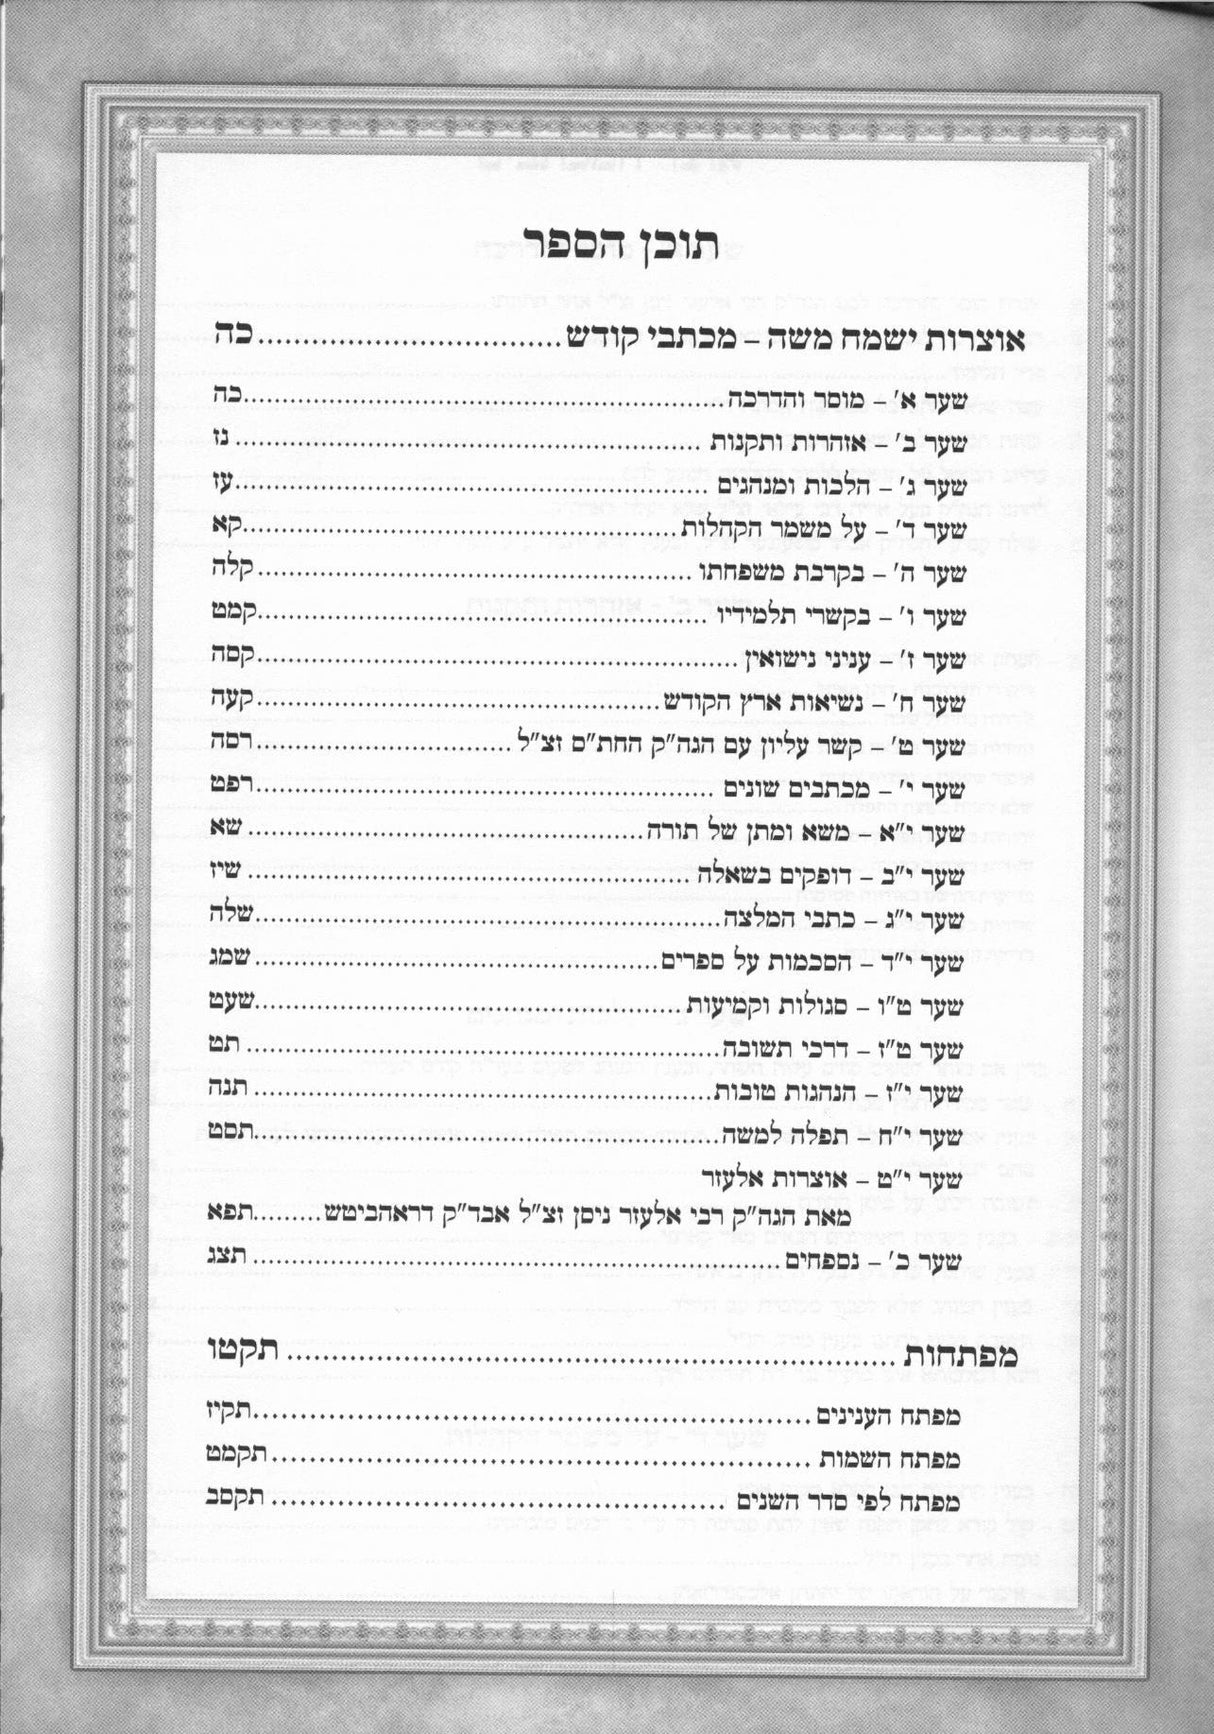 תוכן הספר
אוצרות ישמח משה – מכתבי קודש..............................כה
שער א׳ – מוסר והדרכה..............................כה
שער ב׳ – אזהרות ותקנות..............................נז
שער ג׳ – הלכות ומנהגים..............................עז
שער ד׳ – על משמר הקהלות..............................קא
שער ה׳ – בקרבת משפחתו..............................קלה
שער ו׳ – בקשרי תלמידיו..............................קמט
שער ז׳ – עניני נישואין..............................קסה
שער ח׳ – נשיאות ארץ הקודש..............................קעה
שער ט׳ – קשר עליון עם הגה״ק החת״ם זצ״ל..............................רסה
שער י׳ – מכתבים שונים..............................רפט
שער י״א – משא ומתן של תורה..............................שא
שער י״ב – דופקים בשאלה..............................שיז
שער י״ג – כתבי המלצה..............................שלה
שער י״ד – הסכמות על ספרים..............................שמג
שער ט״ו – סגולות וקמיעות..............................שעט
שער ט״ז – דרכי תשובה..............................תט
שער י״ז – הנהגות טובות..............................תנה
שער י״ח – תפלה למשה..............................תסט
שער י״ט – אוצרות אלעזר
מאת הגה״ק רבי אלעזר ניסן זצ״ל אבד״ק דראהביטש.........תפא
שער כ׳ – נספחים..............................תצג
מפתחות..............................תקטו
מפתח הענינים..............................תקיז
מפתח השמות..............................תקמט
מפתח לפי סדר השנים..............................תקסב